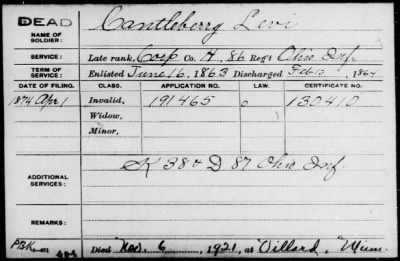 DEAD
Cantleberry Levi
NAME OF
SOLDIER:
SERVICE: Late rank, Corp Co. A, 86 Reg't Ohio Inf.
TERM OF
SERVICE: Enlisted June 16, 1863 Discharged Feb 10, 1864
DATE OF FILING. CLASS. APPLICATION NO. LAW. CERTIFICATE NO.
1874 Apr 1 Invalid, 191465 130410
Widow,
Minor.
ADDITIONAL
SERVICES: K 38 & D 87 Ohio Inf.
REMARKS:
P.B.K.
Died Nov. 6, 1921, at Villard, Minn.